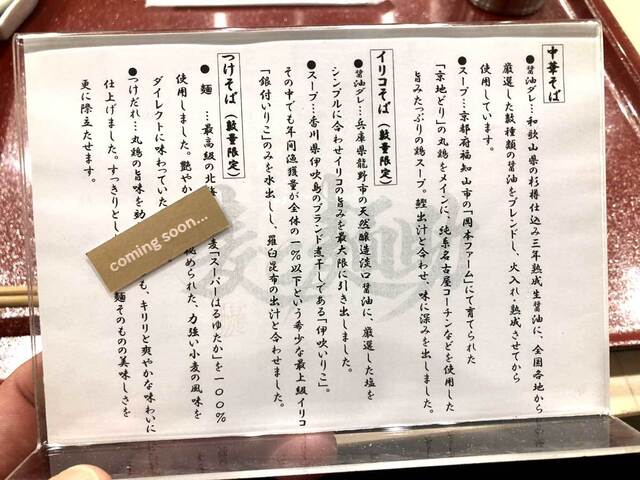 中華そば
●醤油ダレ…和歌山県の杉樽仕込み三年熟成生醤油に、全国各地から
厳選した数種類の醤油をブレンドし、火入れ・熟成させてから
使用しています。
●スープ…京都府福知山市の「岡本ファーム」にて育てられた
「京地どり」の丸鶏をメインに、純系名古屋コーチンなどを使用した
旨みたっぷりの鶏スープ。鰹出汁と合わせ、味に深みを出しました。
イリコそば（数量限定）
●醤油ダレ…兵庫県龍野市の天然醸造淡口醤油に、厳選した塩を
シンプルに合わせイリコの旨みを最大限に引き出しました。
●スープ…香川県伊吹島のブランド煮干しである「伊吹いりこ」。
その中でも年間漁獲量が全体の1％以下という希少な最上級イリコ
「銀付いりこ」のみを水出しし、羅臼昆布の出汁と合わせました。
つけそば（数量限定）
● 麺 …最高級の北海 麦「スーパーはるゆたか」を100％
使用しました。艶やか 秘められた、力強い小麦の風味を
ダイレクトに味わっていた
●つけだれ…丸鶏の旨味を効 も、キリリと爽やかな味わいに
仕上げました。すっきりとし 麺そのものの美味しさを
更に際立たせます。
coming soon...